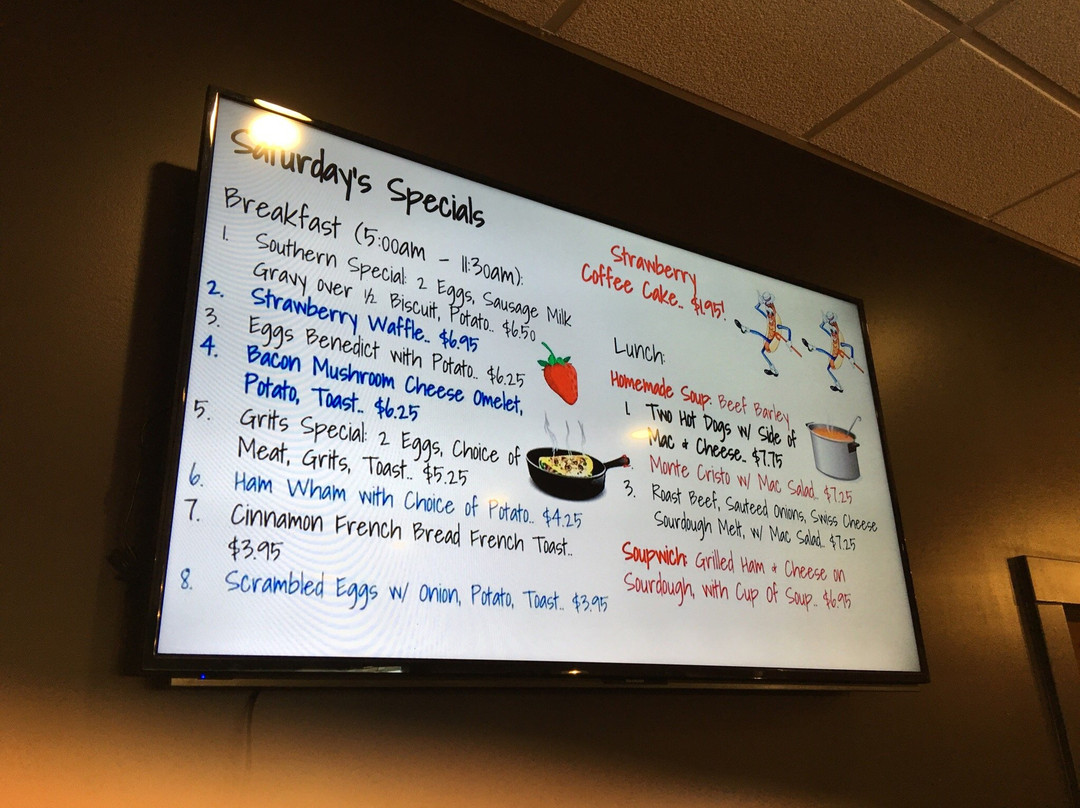 Saturday's Specials
Breakfast (5:00am - 11:30am):
1. Southern Special: 2 Eggs, Sausage Milk
Gravy over ½ Biscuit, Potato.. $6.50
2. Strawberry Waffle.. $6.95
3. Eggs Benedict with Potato.. $6.25
4. Bacon Mushroom Cheese Omelet,
Potato, Toast.. $6.25
5. Grits Special: 2 Eggs, Choice of
Meat, Grits, Toast.. $5.25
6. Ham Wham with Choice of Potato.. $4.25
7. Cinnamon French Bread French Toast..
$3.95
8. Scrambled Eggs w/ Onion, Potato, Toast.. $3.95
Strawberry
Coffee Cake.. $1.95!
Lunch:
Homemade Soup: Beef Barley
1. Two Hot Dogs w/ Side of
Mac & Cheese.. $7.75
Monte Cristo w/ Mac Salad.. $7.25
3. Roast Beef, Sauteed Onions, Swiss Cheese
Sourdough Melt, w/ Mac Salad.. $7.25
Soupwich: Grilled Ham & Cheese on
Sourdough, with Cup Of Soup.. $6.95